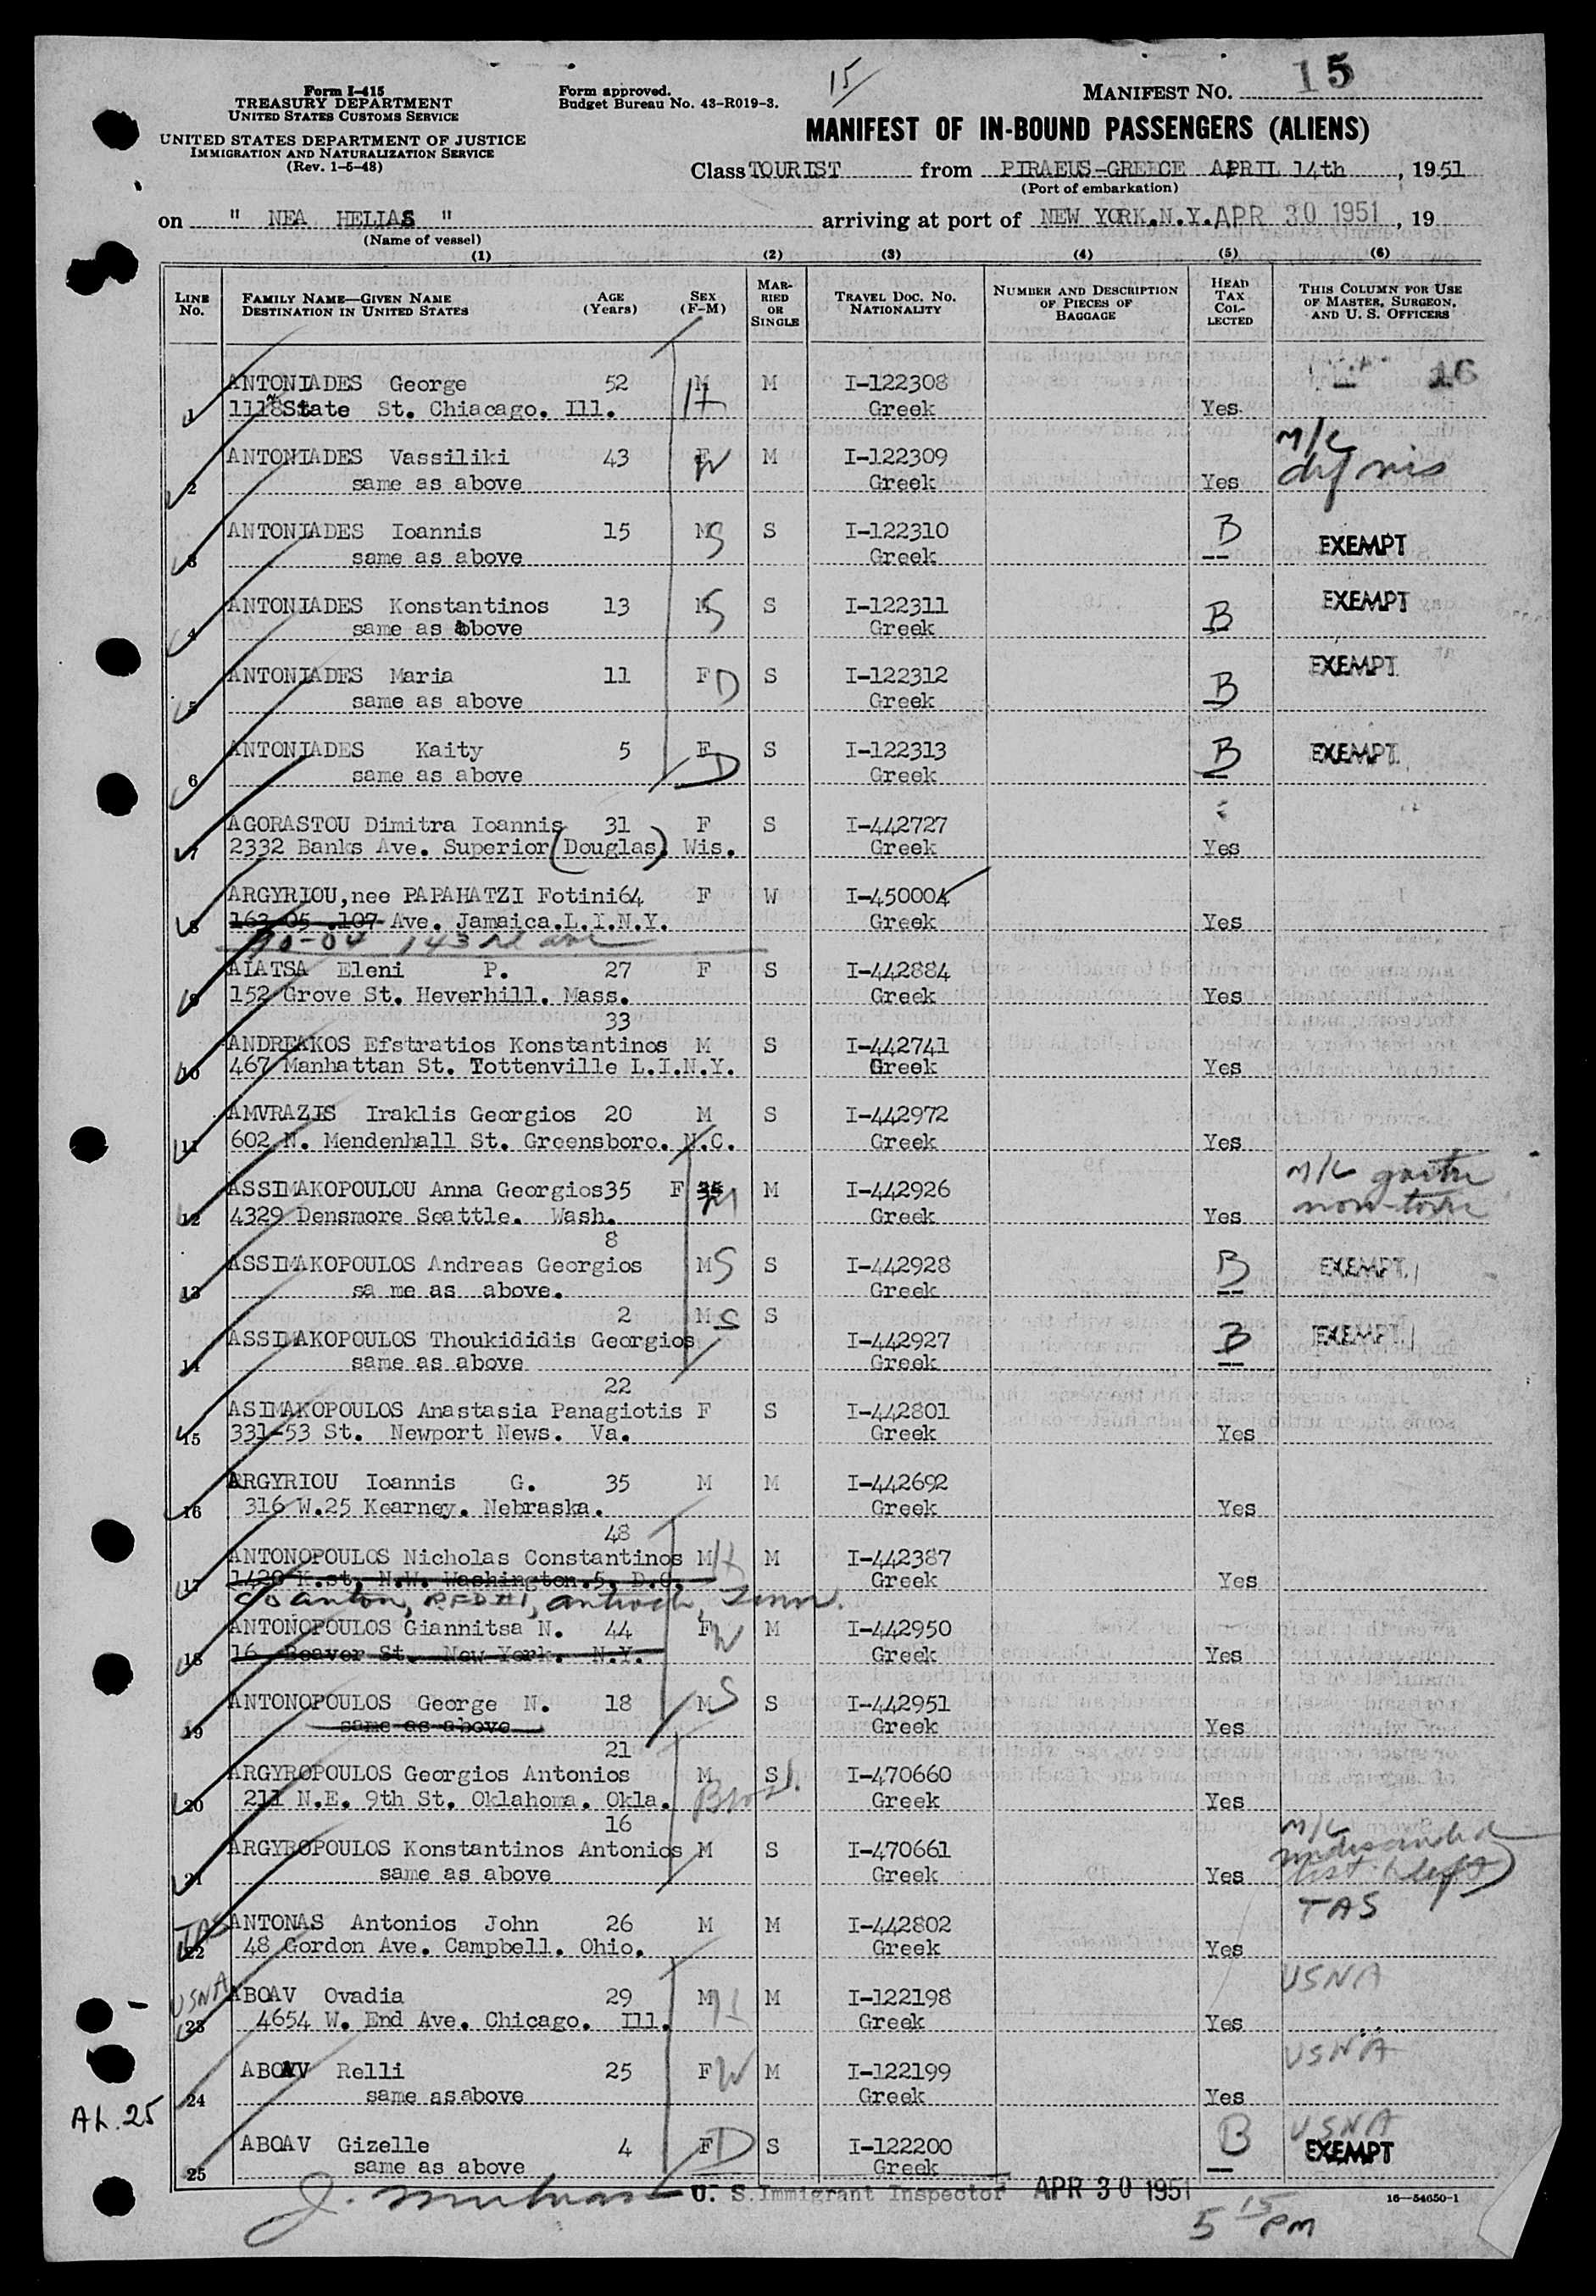 Form I-415
TREASURY DEPARTMENT
UNITED STATES CUSTOMS SERVICE
UNITED STATES DEPARTMENT OF JUSTICE
IMMIGRATION AND NATURALIZATION SERVICE
(Rev. 1-5-48)
Form approved.
Budget Bureau No. 43-R019-3.
15/
MANIFEST NO. 15
MANIFEST OF IN-BOUND PASSENGERS (ALIENS)
Class TOURIST from PIRAEUS-GREECE APRIL 14th, 1951
(Port of embarkation)
on " NEA HELIAS " arriving at port of NEW YORK.N.Y. APR 30 1951, 19
(Name of vessel)
(1) (2) (3) (4) (5) (6)
LINE NO. FAMILY NAME—GIVEN NAME DESTINATION IN UNITED STATES AGE (Years) SEX (F-M) MARRIED OR SINGLE TRAVEL DOC. NO. NATIONALITY NUMBER AND DESCRIPTION OF PIECES OF BAGGAGE HEAD TAX COLLECTED THIS COLUMN FOR USE OF MASTER, SURGEON, AND U. S. OFFICERS
ANTONIADES George 52 M H M I-122308 16
1 1118 State St. Chiacago. Ill. Greek Yes
ANTONIADES Vassiliki 43 F W M I-122309 M/C
2 same as above Greek Yes
ANTONIADES Ioannis 15 M S S I-122310 B EXEMPT
3 same as above Greek
ANTONIADES Konstantinos 13 M S S I-122311 B EXEMPT
4 same as above Greek
ANTONIADES Maria 11 F D S I-122312 B EXEMPT
5 same as above Greek
ANTONIADES Kaity 5 F D S I-122313 B EXEMPT
6 same as above Greek
AGORASTOU Dimitra Ioannis 31 F S I-442727
7 2332 Banks Ave. Superior (Douglas) Wis. Greek Yes
ARGYRIOU, nee PAPAHATZI Fotini 64 F W I-450004
8 163-05 107 Ave. Jamaica.L.I.N.Y. Greek Yes
90-04 143rd ave
AIATSA Eleni P. 27 F S I-442884
9 152 Grove St. Heverhill. Mass. Greek Yes
33
ANDREAKOS Efstratios Konstantinos M S I-442741
10 467 Manhattan St. Tottenville L.I.N.Y. Greek Yes
AMVRAZIS Iraklis Georgios 20 M S I-442972
11 602 N. Mendenhall St. Greensboro. N.C. Greek Yes
ASSIMAKOPOULOU Anna Georgios 35 F 35 M M I-442926 M/C
12 4329 Densmore Seattle. Wash. Greek Yes
8
ASSIMAKOPOULOS Andreas Georgios M S S I-442928 B EXEMPT.
13 sa me as above. Greek
2 M S S
ASSIMAKOPOULOS Thoukididis Georgios I-442927 B EXEMPT.
14 same as above Greek
22
ASIMAKOPOULOS Anastasia Panagiotis F S I-442801
15 331-53 St. Newport News. Va. Greek Yes
ARGYRIOU Ioannis G. 35 M M I-442692
16 316 W.25 Kearney. Nebraska. Greek Yes
48
ANTONOPOULOS Nicholas Constantinos M H M I-442387
17 1420 K.st, N.W. Washington.5, D.C. Greek Yes
c/o Anton, RFD #1, Antioch, Tenn.
ANTONOPOULOS Giannitsa N. 44 F W M I-442950
18 16 Beaver St. New York. N.Y. Greek Yes
ANTONOPOULOS George N. 18 M S S I-442951
19 same as above Greek Yes
21
ARGYROPOULOS Georgios Antonios M S I-470660
20 211 N.E. 9th St. Oklahoma. Okla. Bros. Greek Yes
16
ARGYROPOULOS Konstantinos Antonios M S I-470661 M/C
21 same as above Greek Yes undescended test. (left)
TAS ANTONAS Antonios John 26 M M I-442802 TAS
22 48 Gordon Ave. Campbell. Ohio. Greek Yes
USNA ABOAV Ovadia 29 M H M I-122198 USNA
23 4654 W. End Ave. Chicago. Ill. Greek Yes
ABOAV Relli 25 F W M I-122199 USNA
24 same as above Greek Yes
AL. 25
ABOAV Gizelle 4 F D S I-122200 B USNA EXEMPT
25 same as above Greek
U. S. Immigrant Inspector APR 30 1951
16—54650-1
5 15 PM